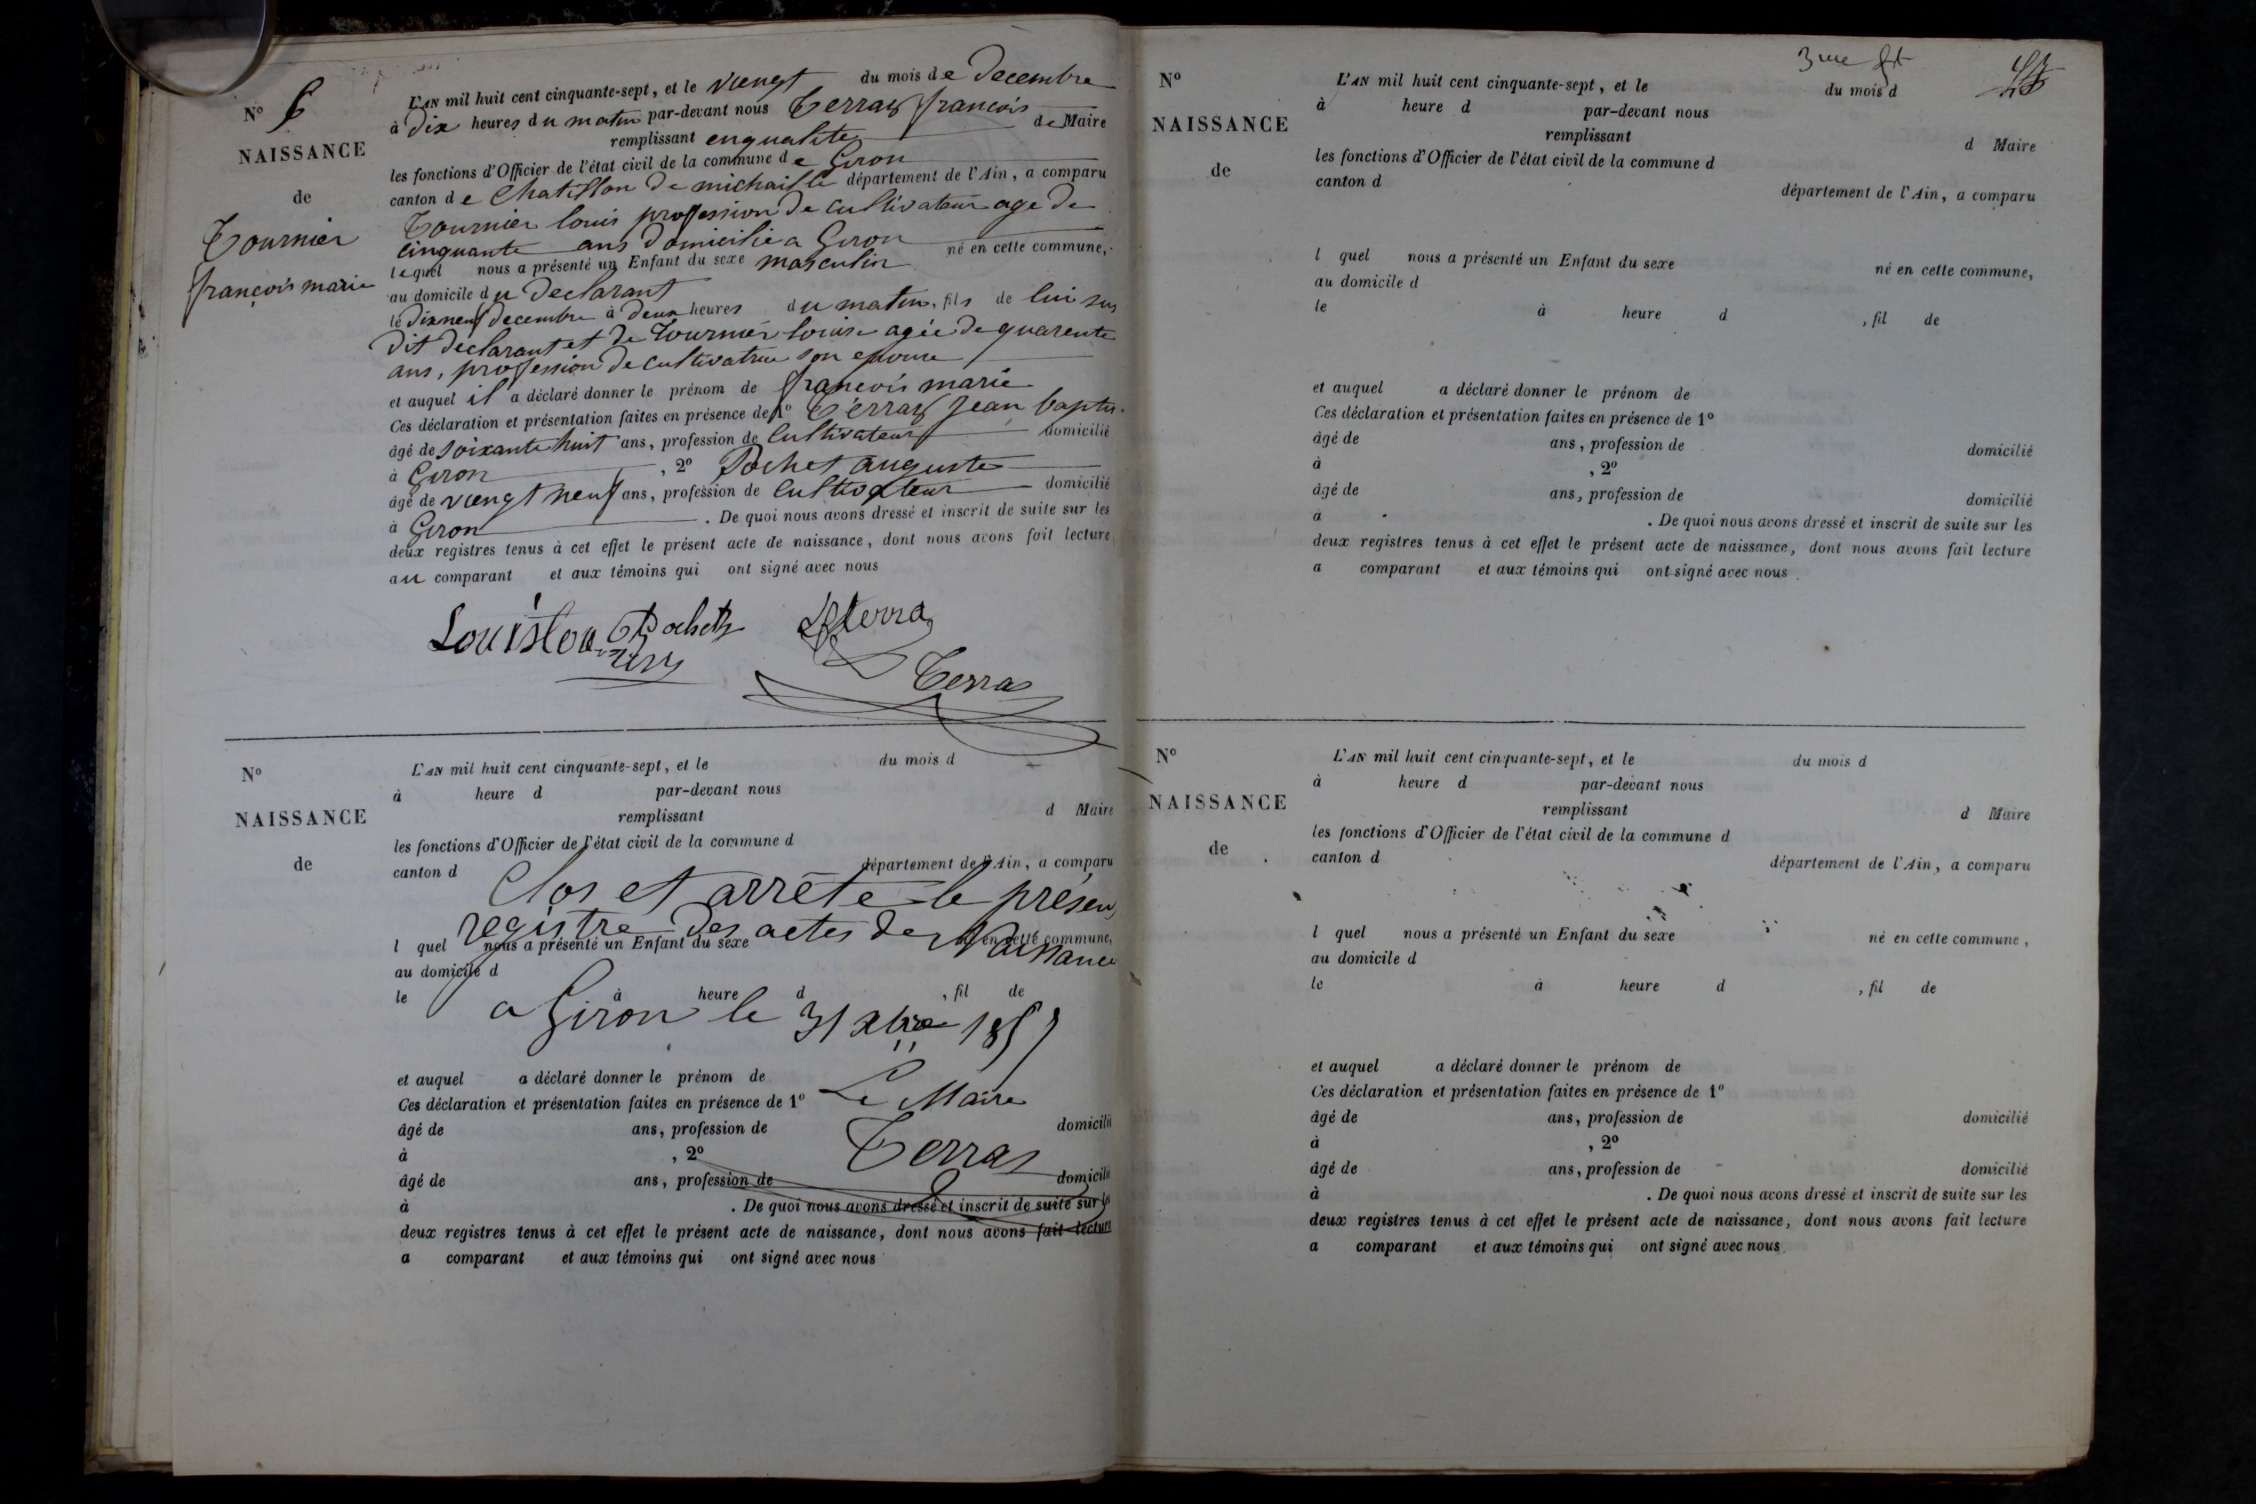 N° 6
NAISSANCE
de
Tournier
françois marie
L'AN mil huit cent cinquante-sept, et le vuengt du mois de decembre
à dix heures du matin par-devant nous Terraz françois
remplissant enqualite de Maire
les fonctions d'Officier de l'état civil de la commune de Giron
canton de Chatillon de michaille département de l'Ain, a comparu
Tournier louis profession de cultivateur age de
cinquante ans domicilie a Giron
lequel nous a présenté un Enfant du sexe masculin né en cette commune,
au domicile du declarant
le dixneuf decembre à deux heures du matin, fils de lui sus
dit declarant et de Tournier louise agée de quarente
ans, profession de cultivatrice son epouse
et auquel il a déclaré donner le prénom de françois marie
Ces déclaration et présentation faites en présence de 1° Terraz Jean baptis.
âgé de soixante huit ans, profession de cultivateur domicilié
à Giron , 2° Pochet auguste
âgé de vuengt neuf ans, profession de cultivateur domicilié
à Giron . De quoi nous avons dressé et inscrit de suite sur les
deux registres tenus à cet effet le présent acte de naissance, dont nous avons fait lecture
au comparant et aux témoins qui ont signé avec nous
Louis tou Pochet terra
Terraz
N°
NAISSANCE
de
L'AN mil huit cent cinquante-sept, et le du mois d
à heure d par-devant nous
remplissant d Maire
les fonctions d'Officier de l'état civil de la commune d
canton d département de l'Ain, a comparu
Clos et arrêté le présen
registre des actes de Naissance
l quel nous a présenté un Enfant du sexe né en cette commune,
au domicile d
le à heure d , fil de
a Giron le 31 xbre 1857
et auquel a déclaré donner le prénom de
Le Maire
Ces déclaration et présentation faites en présence de 1°
âgé de ans, profession de domicilié
à , 2°
Terraz
âgé de ans, profession de domicilié
à . De quoi nous avons dressé et inscrit de suite sur les
deux registres tenus à cet effet le présent acte de naissance, dont nous avons fait lecture
a comparant et aux témoins qui ont signé avec nous
3me ft
N°
NAISSANCE
de
L'AN mil huit cent cinquante-sept, et le du mois d
à heure d par-devant nous
remplissant d Maire
les fonctions d'Officier de l'état civil de la commune d
canton d département de l'Ain, a comparu
l quel nous a présenté un Enfant du sexe né en cette commune,
au domicile d
le à heure d , fil de
et auquel a déclaré donner le prénom de
Ces déclaration et présentation faites en présence de 1°
âgé de ans, profession de domicilié
à , 2°
âgé de ans, profession de domicilié
à . De quoi nous avons dressé et inscrit de suite sur les
deux registres tenus à cet effet le présent acte de naissance, dont nous avons fait lecture
a comparant et aux témoins qui ont signé avec nous
N°
NAISSANCE
de
L'AN mil huit cent cinquante-sept, et le du mois d
à heure d par-devant nous
remplissant d Maire
les fonctions d'Officier de l'état civil de la commune d
canton d département de l'Ain, a comparu
l quel nous a présenté un Enfant du sexe né en cette commune,
au domicile d
le à heure d , fil de
et auquel a déclaré donner le prénom de
Ces déclaration et présentation faites en présence de 1°
âgé de ans, profession de domicilié
à , 2°
âgé de ans, profession de domicilié
à . De quoi nous avons dressé et inscrit de suite sur les
deux registres tenus à cet effet le présent acte de naissance, dont nous avons fait lecture
a comparant et aux témoins qui ont signé avec nous